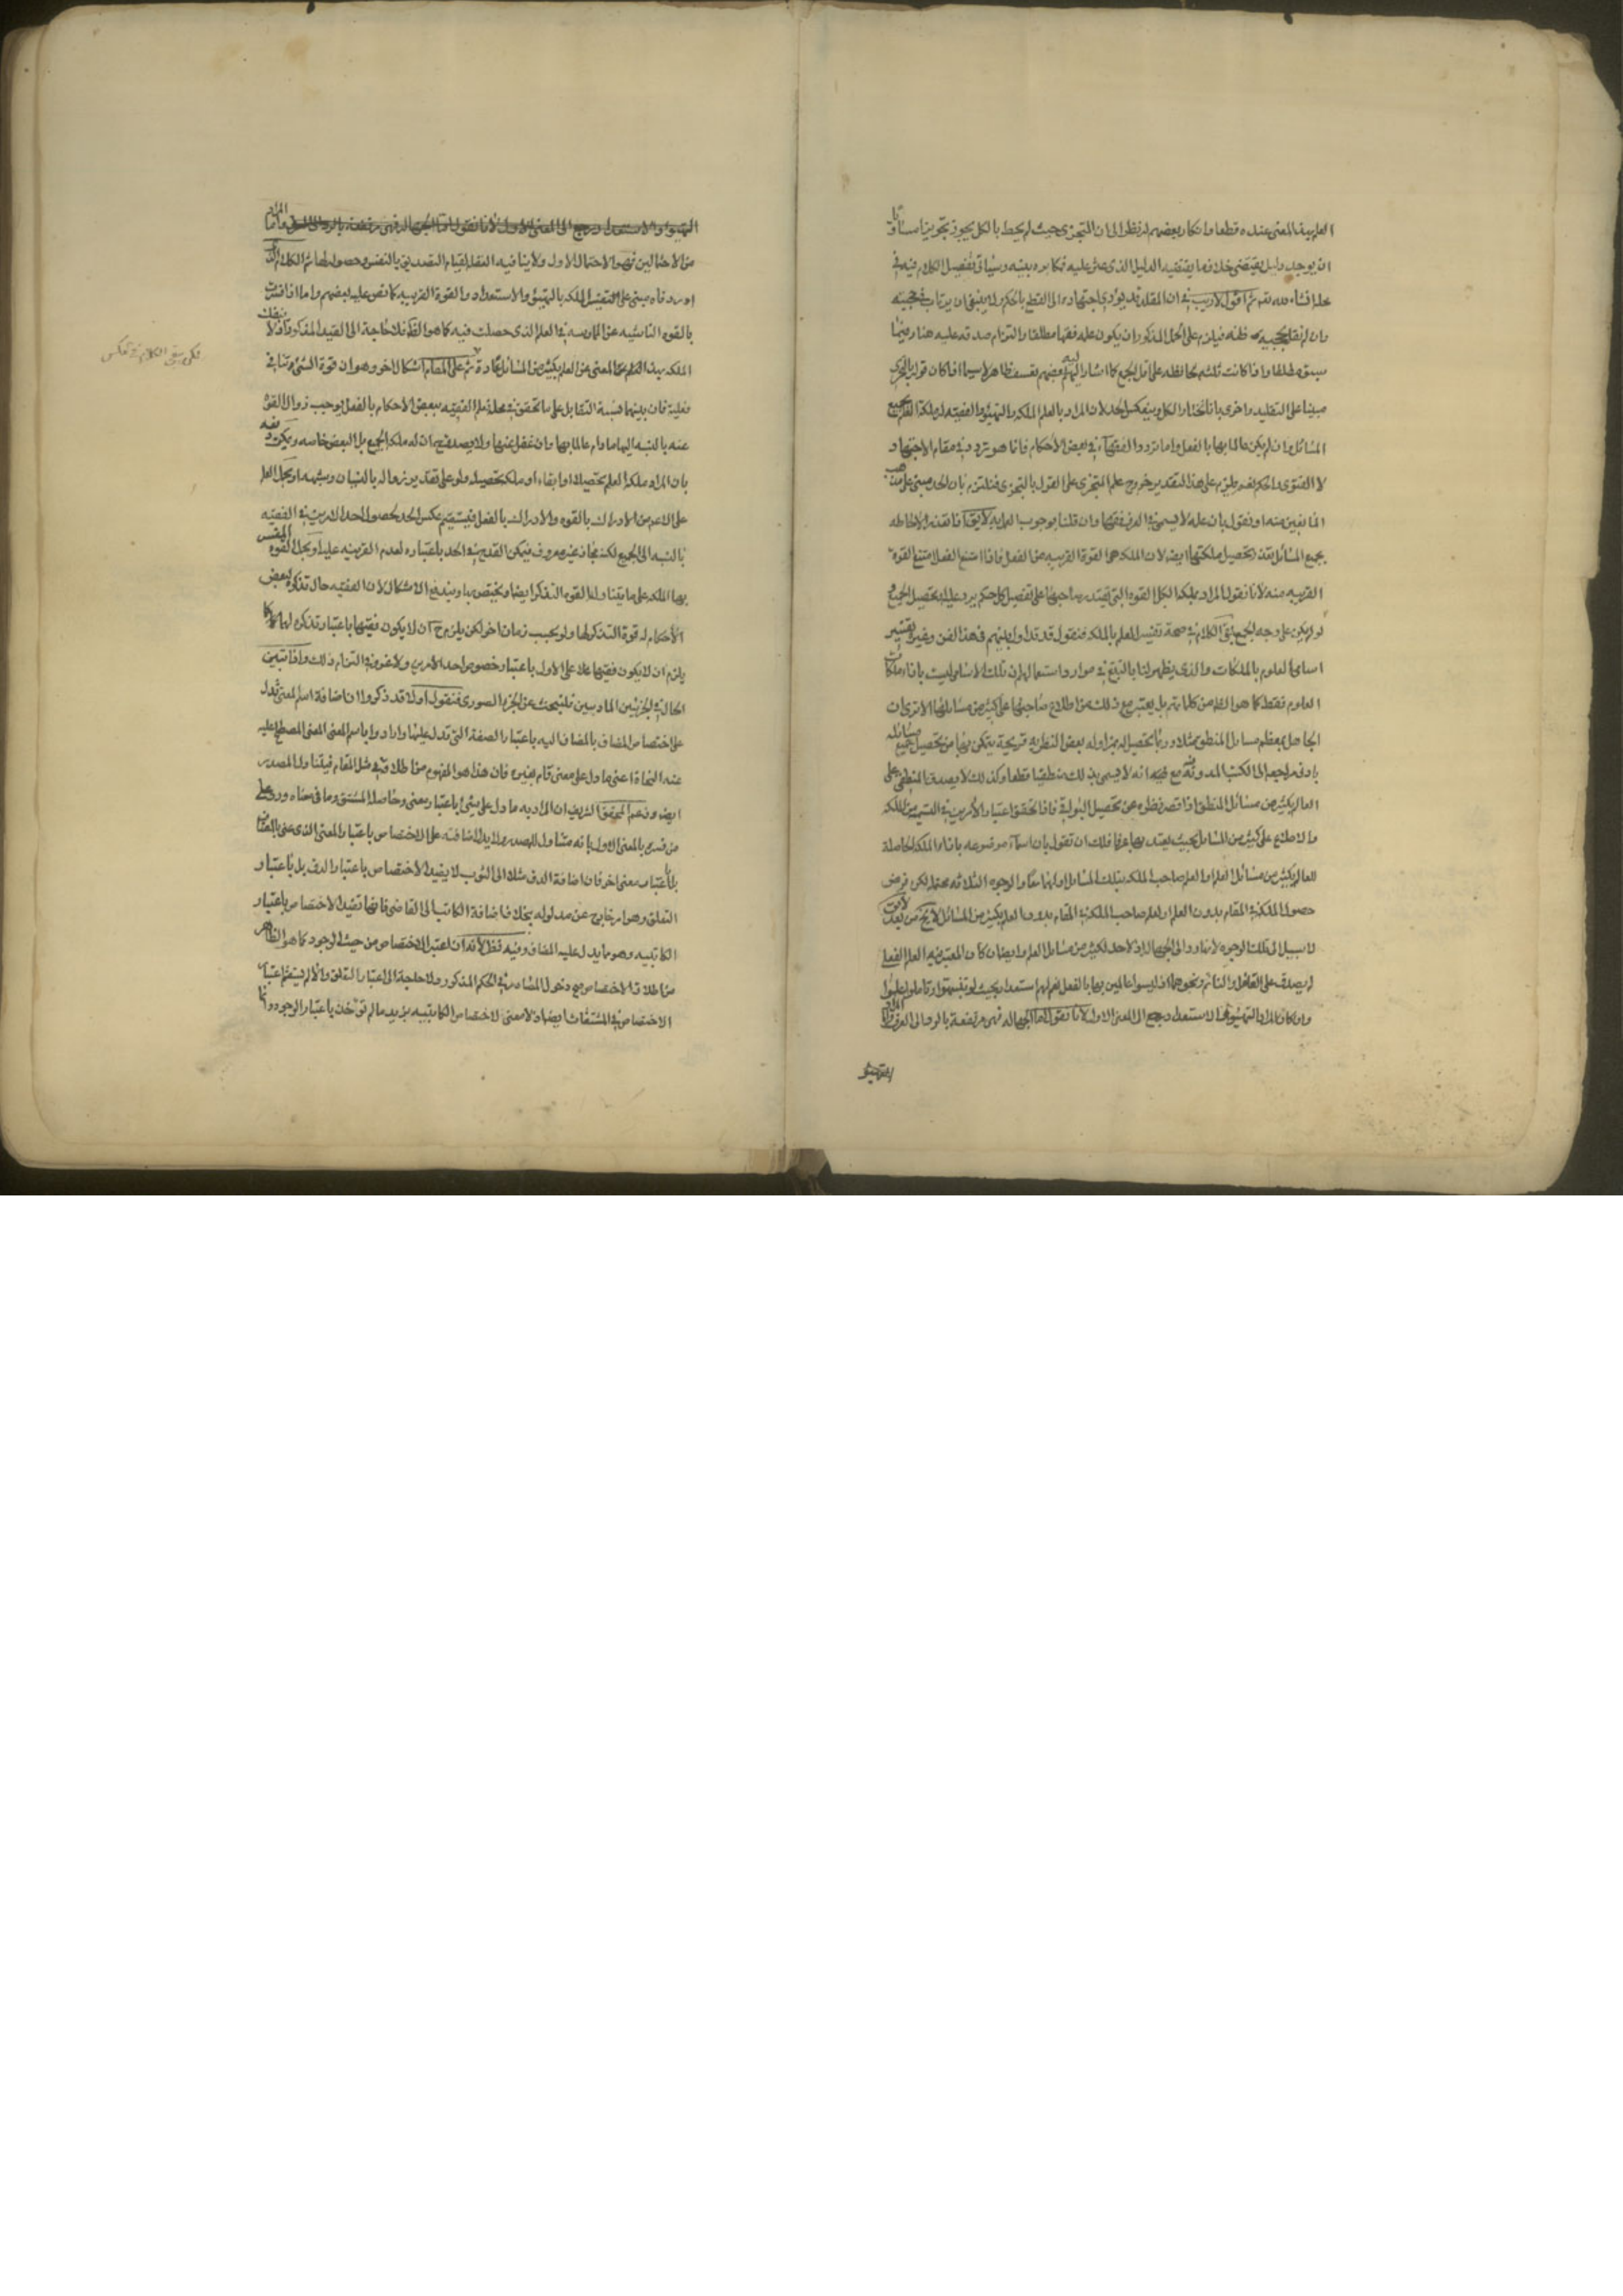 العلم بهذا المعنى عنده قطعا وانكار بعضهم له نظرا الى ان التجزى حيث لم يحط بالكل يجوز تجويزا مساويا
ان يوجد دليل يقتضى خلاف ما يقتضيه الدليل الذى عثر عليه مكابره بينه وسياتى تفصيل الكلام فيه فى
محله انشاء الله تم ثم اقول لا ريب فى ان المقلد قد يؤدى اجتهاده الى القطع باحكام لا ينبغى ان يرتاب فى حجيته
وان لم نقل بحجيه ظنه فيلزم على الحد المذكور ان يكون علمه فقها مطلقا والتزام صدقه عليه هنا وفيما
سبق مطلقا واذا كانت ثلثه محافظه على اقل الجمع كما اشار اليه بعضهم تعسف ظاهر لا سيما اذا كان قوله بالتجزى
مبنيا على التقليد واخرى بانا نختار الكل وينعكس الحد لان المراد بالعلم الملكه والتهيؤ والفقيه له ملكة العلم بجميع
المسائل وان لم يكن عالما بها بالفعل واما تردد الفقهاء فى بعض الاحكام فانما هو تردد فى مقام الاجتهاد
لا الفتوى والحكم نعم يلزم على هذا التقدير خروج علم المتجزى على القول بالتجزى فنلتزم بان الحد مبنى على مذهب
المانعين منه او نقول بان علمه لا يسمى فى العرف فقها وان قلنا بوجوب العمل به لا يق اذا تعذر الاحاطه
بجميع المسائل تعذر تحصيل ملكتها ايض لان الملكه هى القوة القريبه من الفعل فاذا امتنع الفعل امتنع القوة
القريبه منه لانا نقول المراد بملكة الكل القوه التى يقتدر صاحبها على تفصيل كل حكم يرد عليه وتحصيل الجميع
لو لم يكن على وجه الجمع بقى الكلام فى صحة تفسير العلم بالملكه فنقول قد تداول بينهم فى هذا الفن وغيره تفسير
اسامى العلوم بالملكات والذى يظهر لنا بالتتبع فى موارد استعمالهم ان تلك الاسامى ليست بازاء ملكات
العلوم فقط كما هو الظ من كلماتهم بل يعتبر مع ذلك من اطلاع صاحبها على كثير من مسائلها الا ترى ان
الجاهل بمعظم مسائل المنطق مثلا وربما تحصيل له بمزاوله بعض النظريه قريحة يتمكن بها من تحصيل جميع مسائله
بادنى مراجعه الى الكتب المدونه فيه مع انه لا يسمى بذلك منطقيا قطعا وكذلك لا يصدق المنطقى على
العالم بكثير من مسائل المنطق اذا قصر نظره عن تحصيل البواقى فاذا تحقق اعتبار الامرين فى التسميه من الملكه
والاطلاع على كثير من المسائل بحيث يعتد بها عرفا فلك ان تقول بان اسماء موضوعه بازاء الملكه الحاصلة
للعالم بكثير من مسائل العلم او العلم صاحب الملكه بتلك المسائل او لهما معا والوجوه الثلاثه محتمله لكن فرض
حصول الملكه فى المقام بدون العلم او لعلم صاحب الملكه فى المقام بدون العلم بكثير من المسائل لا يخ من بعد لا يق
لا سبيل الى تلك الوجوه لانها تؤدى الى الجهاله اذ لا حد لكثير من مسائل العلم وايضا ان كان المعتبر فيه العلم الفعلى
لم يصدق على الغافل والنائم ونحوهما اذ ليسوا عالمين بها بالفعل نعم لهم استعداد بحيث لو تنبهوا وتاملوا علموا
وان كان المراد التهيؤ والاستعداد رجع الى المعنى الاول لانا نقول اما الجهاله فهى مرتفعة بالرد الى العرف واما المراد
التهيؤ
التهيؤ والاستعداد رجع الى المعنى الاول لانا نقول اما الجهاله فهى مرتفعة بالرد الى العرف واما المراد
من الاحتمالين فهو الاحتمال الاول ولا ينافيه الغفله لقيام التصديق بالنفس وحصوله لها ثم الكلام الذى
اوردناه مبنى على تفسير الملكه بالتهيؤ والاستعداد والقوة القريبه كما نص عليه بعضهم واما اذا فسرت
بالقوه الناشيه عن الممارسه فى العلم الذى حصلت فيه كما هو الظ فلا حاجة الى القيد المذكور اذ لا ينفك
الملكه بهذا المعنى عن العلم بكثير من المسائل عادة ثم على المقام اشكال اخر وهو ان قوة الشئ تنافى
فعلية فان بينهما نسبة التقابل على ما تحقق فى محله فعلم الفقيه ببعض الاحكام بالفعل يوجب زوال القوة
عنه بالنسبه اليها ما دام عالما بها وان غفل عنها ولا يصدق ح ان له ملكه الجميع بل البعض خاصه ويمكن دفعه
بان المراد ملكة العلم تحصيلا او ابقاء او ملكة تحصيله ولو على تقدير زواله بالنسيان وشبهه او بحمل العلم
على الاعم من الادراك بالقوه والادراك بالفعل فيستقيم عكس الحد لحصول احد الامرين فى الفقيه
بالنسبه الى الجميع لكنه مجاز غير معروف فيمكن القدح فى الحد باعتباره لعدم القرينه عليه او بحمل القوه المفسر
بها الملكه على ما يتناول القوه التذكر ايضا ويختص بها ويندفع الاشكال لان الفقيه حال تذكره لبعض
الاحكام له قوة التذكر لها ولو بحسب زمان اخر لكن يلزم ح ان لا يكون فقيها باعتبار تذكره لها كما
يلزم ان لا يكون فقيها على الاول باعتبار خصوص احد الامرين ولا غرو فى التزام ذلك واذا تبين
الحال فى الجزئين الماديين فلنبحث عن الجزء الصورى فنقول اولا قد ذكروا ان اضافة اسم المعنى تدل
على اختصاص المضاف بالمضاف اليه باعتبار الصفة التى تدل عليها وارادوا باسم المعنى المعنى المصطلح عليه
عند النحاة اعنى ما دل على معنى قام بغيره فان هذا هو المفهوم من اطلاقه فى مثل المقام فيتناول المصدر
ايض وزعم المحقق الشريف ان المراد به ما دل على شئ باعتبار معنى وحاصله المشتق وما فى معناه ورد على
من فسره بالمعنى الاول بانه متناول للمصدر ولا يدل اضافته على الاختصاص باعتبار المعنى الذى عنى بالعناية
بل باعتبار معنى اخر فان اضافة الدق مثلا الى الثوب لا يفيد الاختصاص باعتبار الدق بل باعتبار
التعلق وهو امر خارج عن مدلوله بخلاف اضافة الكاتب الى القاضى فانها تفيد الاختصاص باعتبار
الكاتبيه وهو ما يدل عليه المضاف وفيه نظر لانه ان اعتبر الاختصاص من حيث الوجود كما هو الظاهر
من اطلاق الاختصاص مع دخول المصادر فى الحكم المذكور ولا حاجة الى اعتبار التعلق والا لم يستقم اعتبار
الاختصاص فى المشتقات ايضا اذ لا معنى لاختصاص الكاتبيه بزيد ما لم تؤخذ باعتبار الوجود وانما